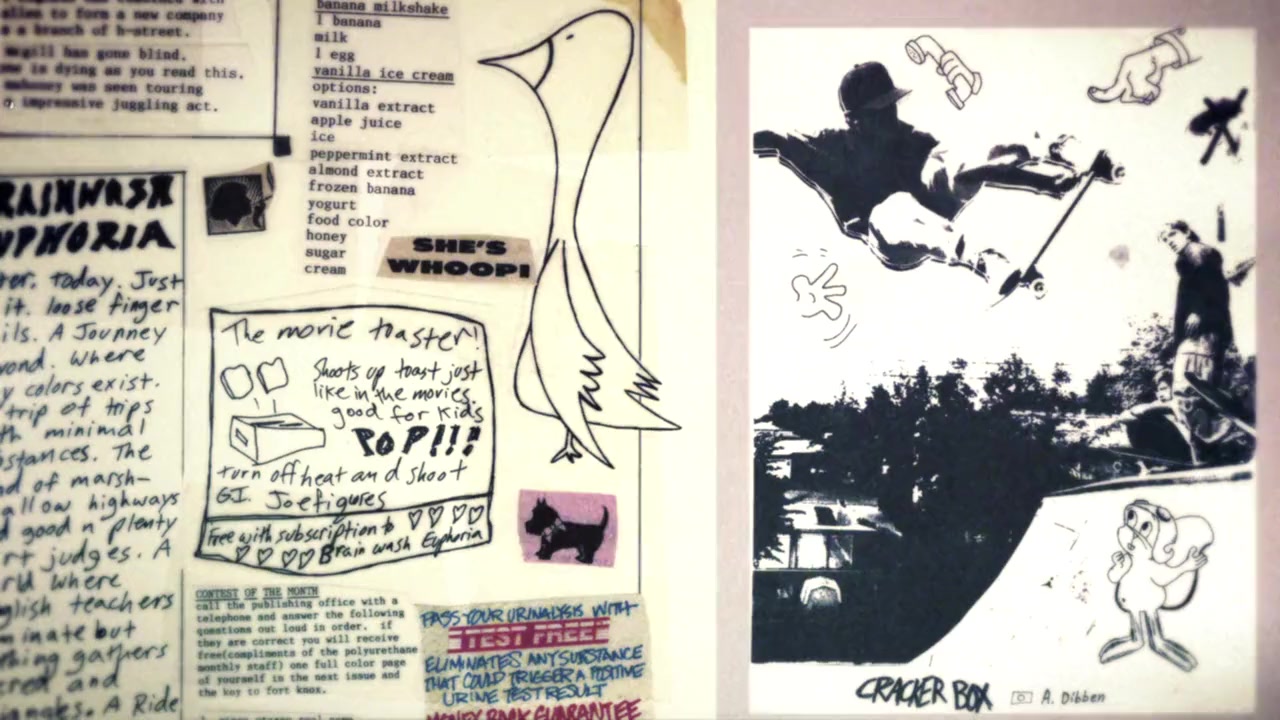 allen to form a new company
a branch of h-street.
mcgill has gone blind.
is dying as you read this.
mahoney was seen touring
impressive juggling act.
banana milkshake
1 banana
milk
1 egg
vanilla ice cream
options:
vanilla extract
apple juice
ice
peppermint extract
almond extract
frozen banana
yogurt
food color
honey
sugar
cream
SHE'S
WHOOPI
RAINWASH
UPHORIA
ter. today. Just
it. loose finger
ils. A Journey
yond. where
y colors exist.
trip of trips
th minimal
bstances. The
nd of marsh-
allow highways
d good n plenty
rt judges. A
rld where
glish teachers
minate but
thing gathers
cred and
angles. A Ride
The movie toaster!
Shoots up toast just
like in the movies.
good for kids
POP!!!
turn off heat and shoot
G.I. Joe figures
Free with subscription to
Brain wash Euphuria
CONTEST OF THE MONTH
call the publishing office with a
telephone and answer the following
questions out loud in order. if
they are correct you will receive
free(compliments of the polyurethane
monthly staff) one full color page
of yourself in the next issue and
the key to fort knox.
PASS YOUR URINALYSIS WITH
"TEST FREE"
ELIMINATES ANY SUBSTANCE
THAT COULD TRIGGER A POSITIVE
URINE TEST RESULT
MONEY BACK GUARANTEE
CRACKER BOX
A. Dibben